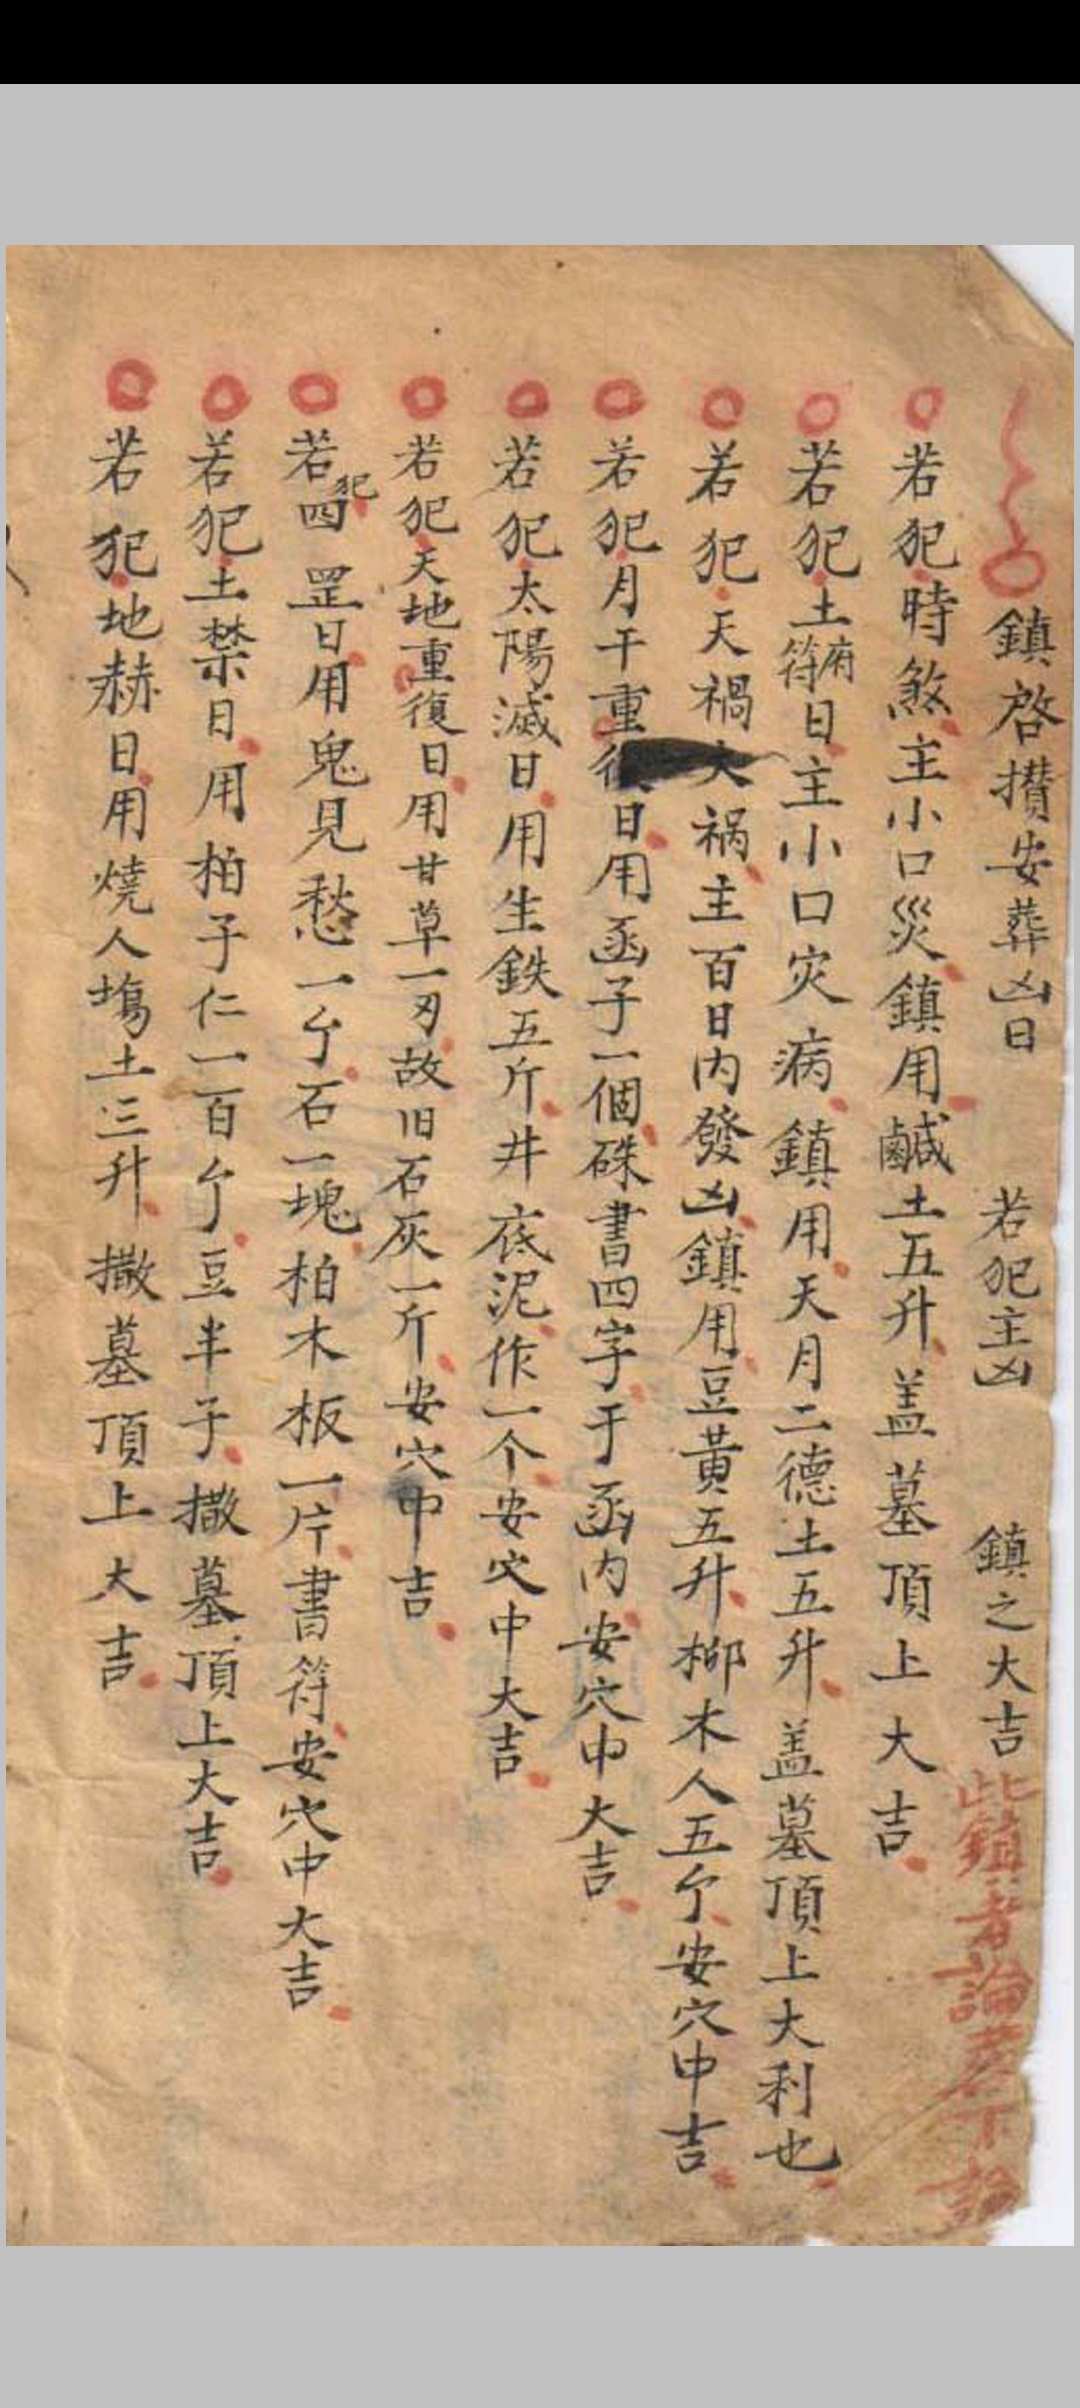 鎮啓攢安葬凶日 若犯主凶 鎮之大吉 此鎮者論葬不論
若犯時煞主小口災鎮用鹹土五升盖墓頂上大吉
若犯土府符日主小口灾病鎮用天月二德土五升盖墓頂上大利也
若犯天禍大祸主百日内發凶鎮用豆黃五升柳木人五亇安穴中吉
若犯月干重復日用函子一個硃書四字于函内安穴中大吉
若犯太陽滅日用生鉄五斤井底泥作一个安穴中大吉
若犯天地重復日用甘草一刄故旧石灰一斤安穴中吉
若犯四罡日用鬼見愁一亇石一塊柏木板一片書符安穴中大吉
若犯土禁日用柏子仁一百亇豆半子撒墓頂上大吉
若犯地赫日用燒人塲土三升撒墓頂上大吉